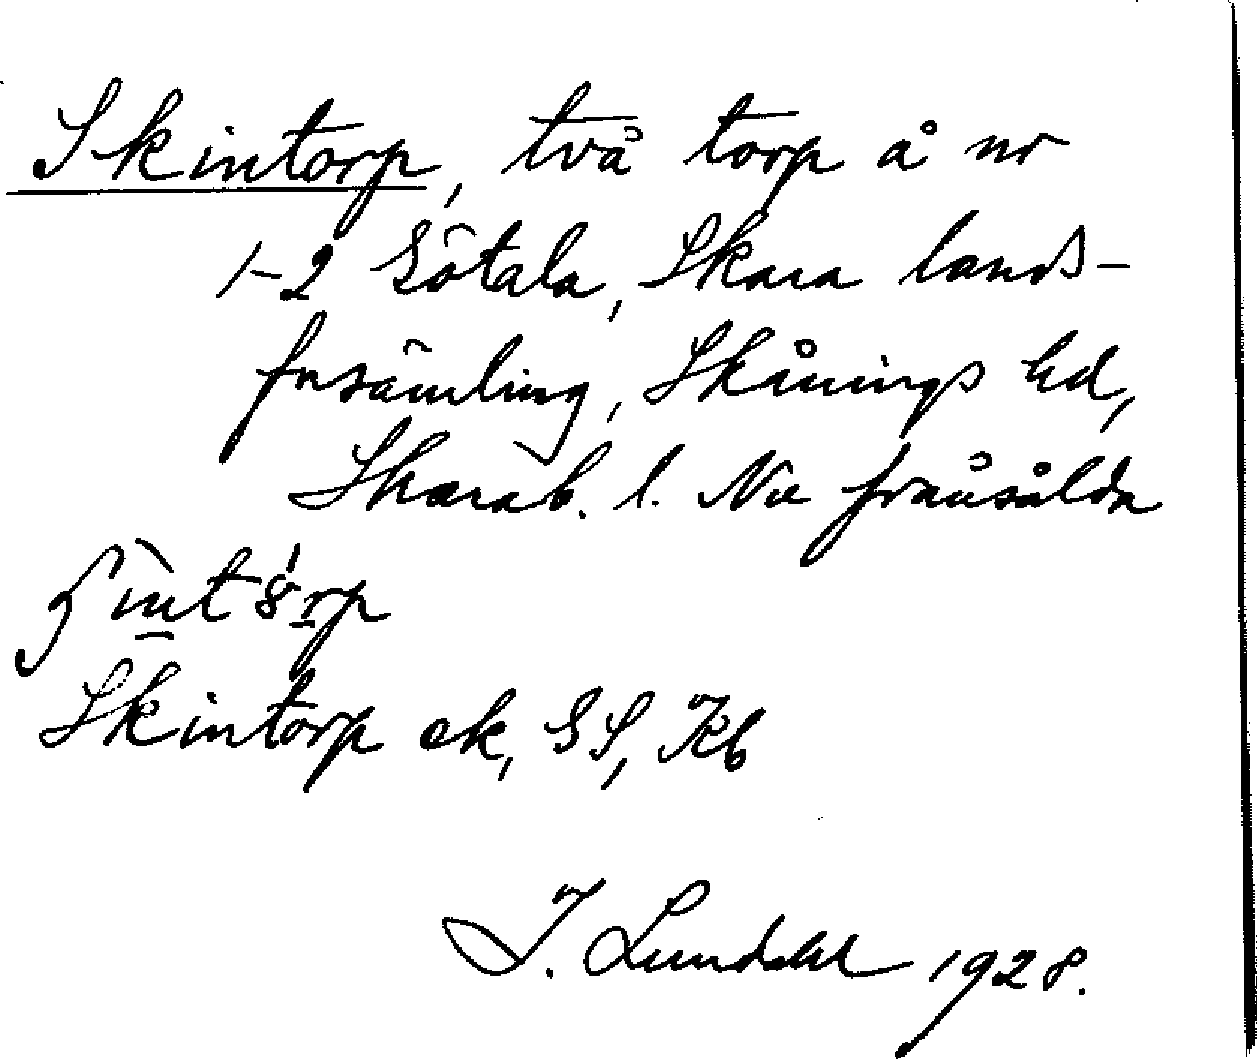 Skintorp, två torp å nr
1-2 Götala, Skara lands-
församling, Skånings hd,
Skarab. l. Nu frånsålda
Skintorp ek, GS, Kb
J. Lundahl 1928.